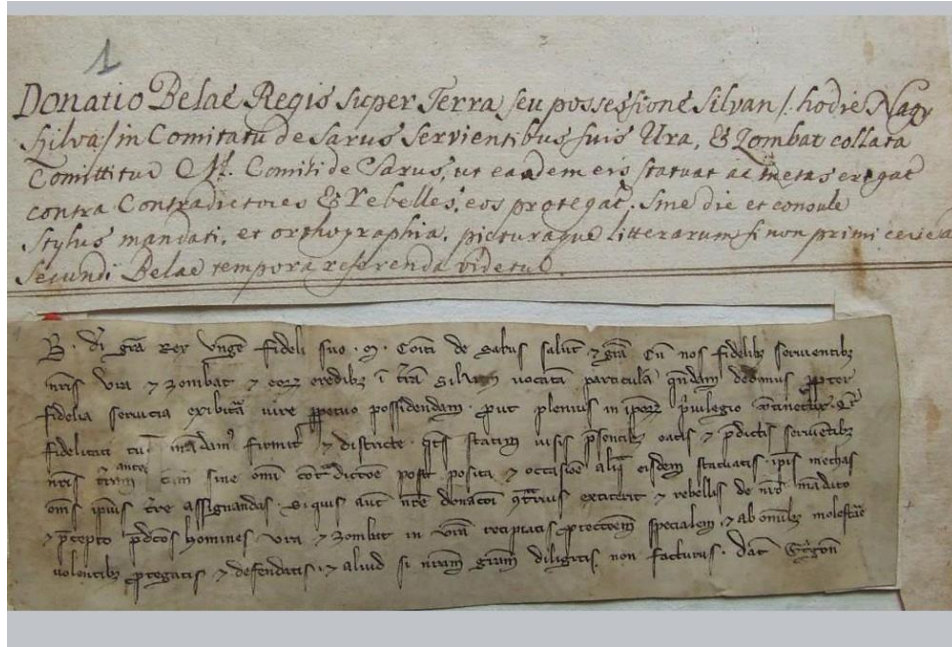 1
Donatio Belae Regis super Terra seu possessione Silvan /: hodie Nagy
Szilva/ in Comitatu de Sarus servientibus suis Ura, & Zombat collata
Comittitur M. Comiti de Sarus, ut eandem eis statuat ac metas erigat
contra Contradictores & rebelles, eos protegat. Sine die et consule
Stylus mandati, et orthographia, picturaque litterarum si non primi certe ad
Secundi Belae tempora referenda videtur.
B. di gra Rex Unge fideli suo . M. Coiti de Sarus salut 7 gram Cu nos fidelibz servientibz
nris Vra 7 Zombat 7 eorz eredibz i tram Silvan uocata particula quendam dedimus propter
fidelia servicia exibita iure perpetuo possidendam . prout plenius in iporz privilegio
fidelitati tue mandam firmit 7 districte statim uisis psentibz 7 pdictis servientibz
nris terram sine omi dictoe post posita 7 occasioe alia eisdem statuatis . ipis methas
oms ipius tre assignandas . Siquis aut nre donacoi contrarius extiterit 7 rebellis de nro madato
7 precepto pdcos homines Vra 7 Zombat in vram recipiatis proteccoem specialem 7 ab omibz molestare
uolentibz protegatis 7 defendatis . 7 aliud si nram gram diligitis non facturus . dat Strigon